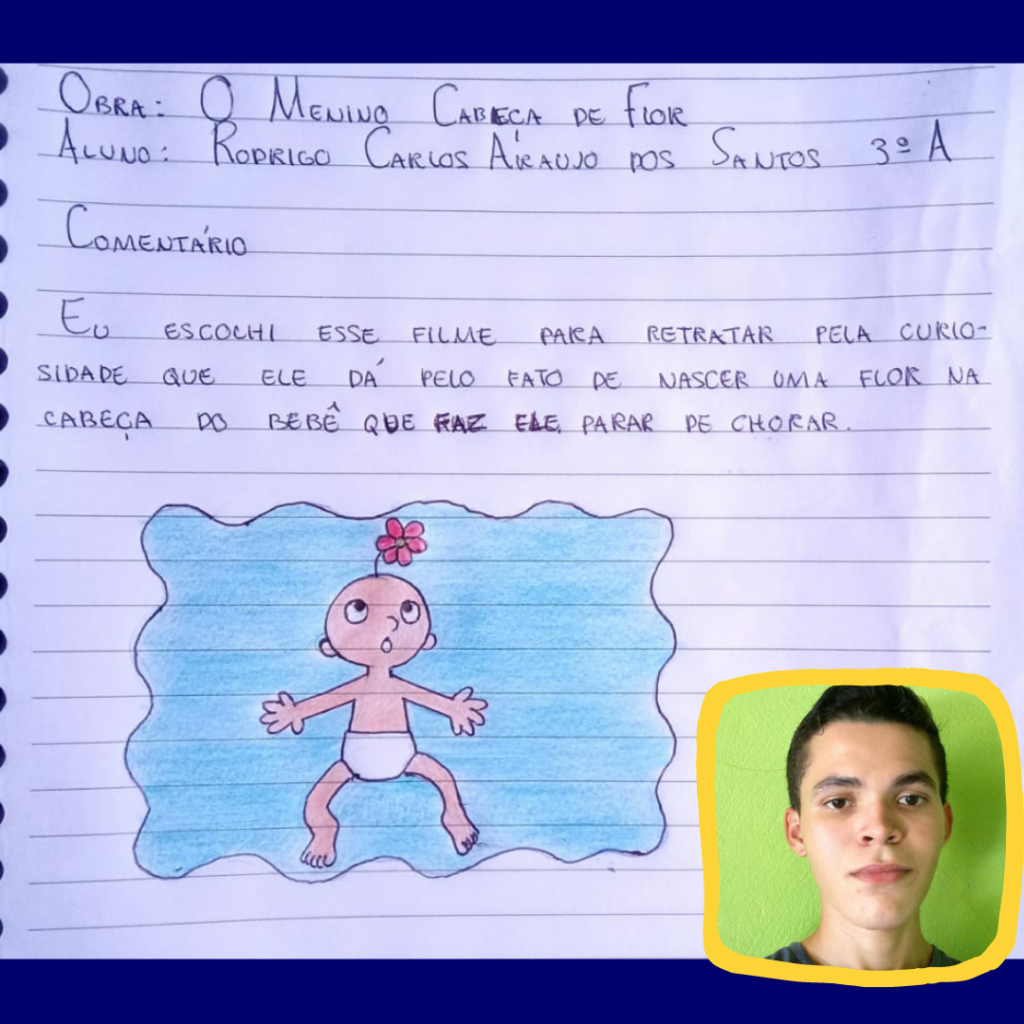 OBRA: O MENINO CABEÇA DE FLOR
ALUNO: RODRIGO CARLOS ARAUJO DOS SANTOS 3º A
COMENTÁRIO
EU ESCOLHI ESSE FILME PARA RETRATAR PELA CURIO-
SIDADE QUE ELE DÁ PELO FATO DE NASCER UMA FLOR NA
CABEÇA DO BEBÊ QUE FAZ ELE PARAR DE CHORAR.